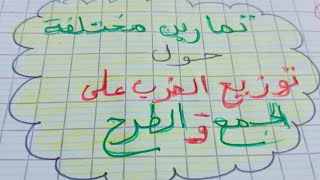 تمارين مختلفة
حول
توزيع الضرب على
الجمع و الطرح